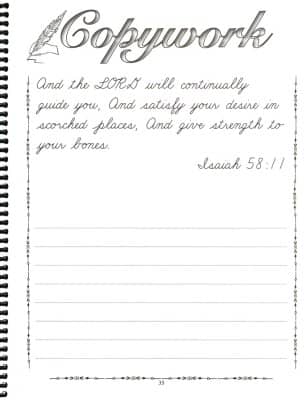 Copywork
And the LORD will continually
guide you, And satisfy your desire in
scorched places, And give strength to
your bones.
Isaiah 58:11
33